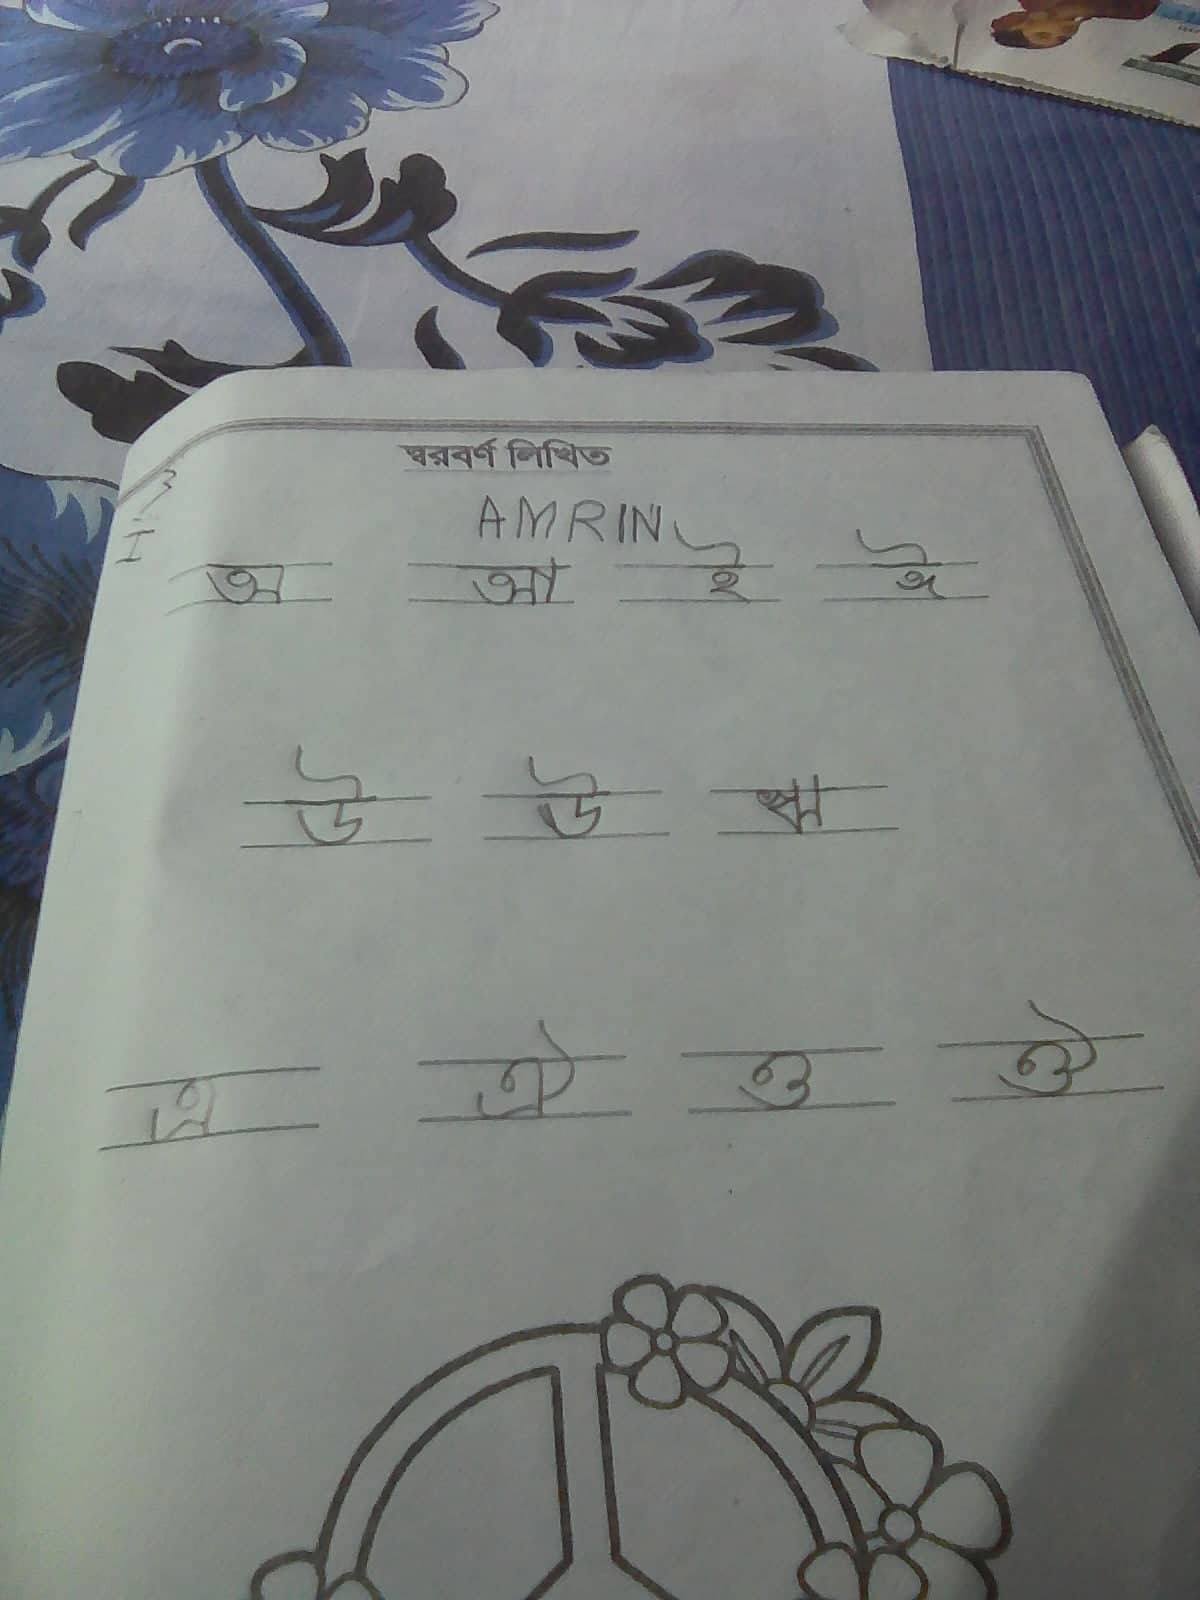 স্বরবর্ণ লিখিত
AMRIN
অ আ ই ঈ
উ উ ঋ
এ ঐ ও ঔ